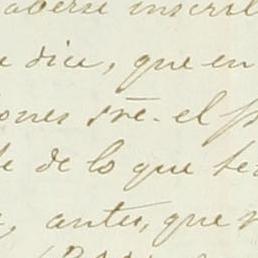 aberse inscri
dice, que en
ones sre. el p
de lo que te
, antes, que